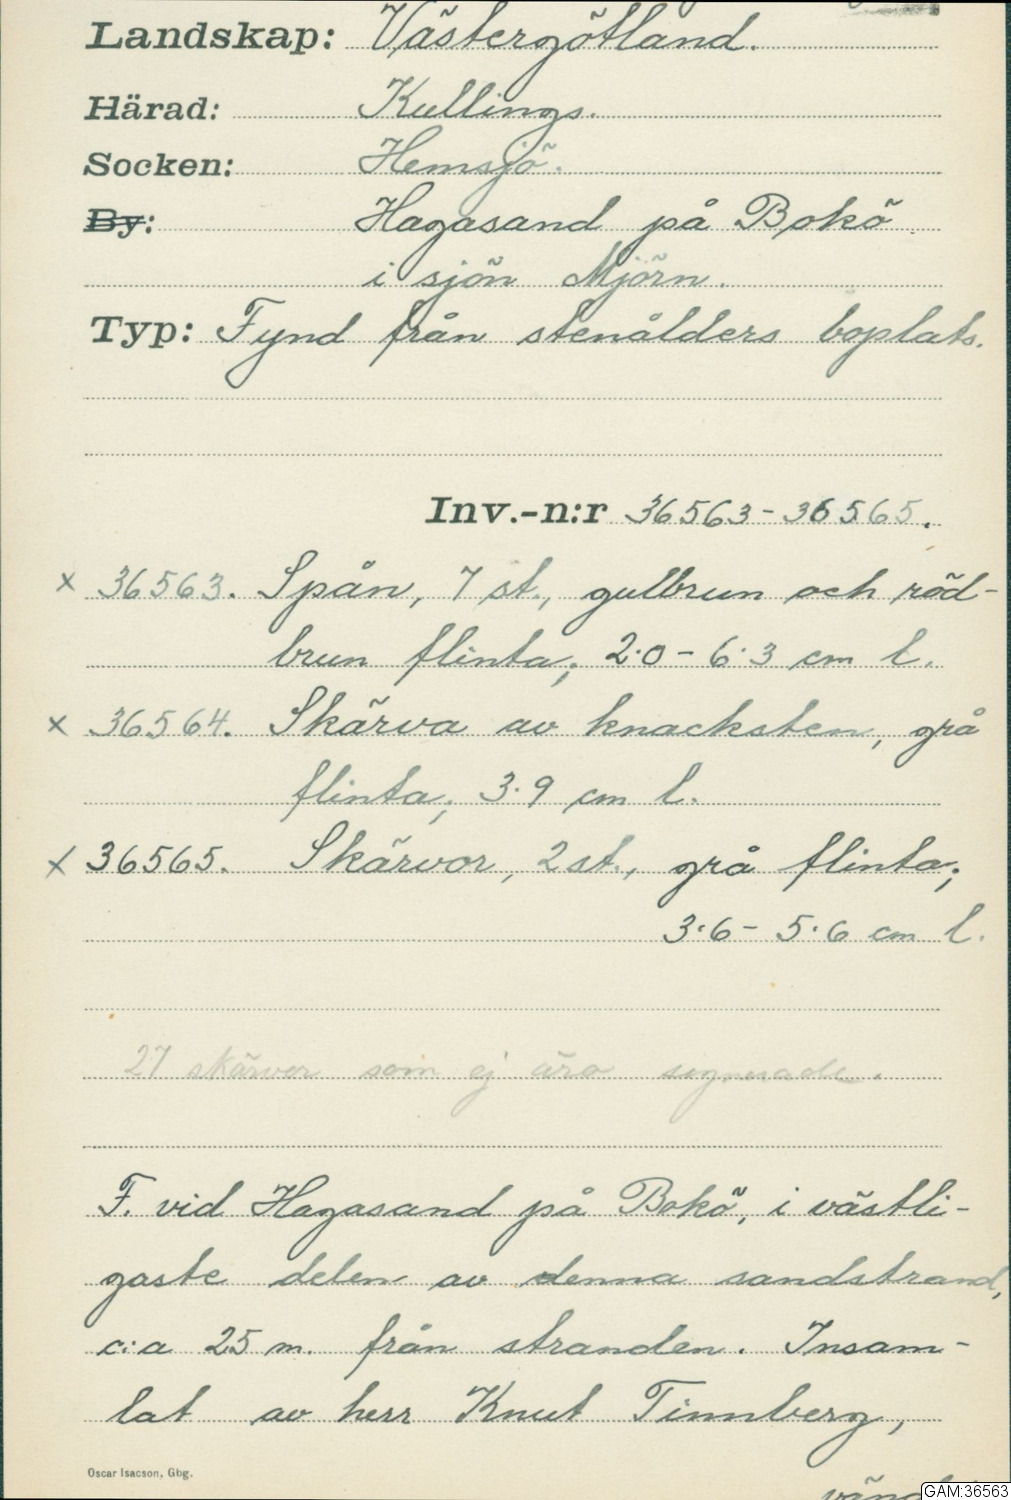 Landskap: Västergötland.
Härad: Kullings.
Socken: Hemsjö.
By: Hagasand på Bokö
i sjön Mjörn.
Typ: Fynd från stenålders boplats.
Inv.-n:r 36563-36565.
x 36563. Spån, 7 st., gulbrun och röd-
brun flinta; 2.0-6.3 cm l.
x 36564. Skärva av knacksten, grå
flinta; 3.9 cm l.
x 36565. Skärvor, 2 st., grå flinta;
3.6-5.6 cm l.
27 skärvor som ej äro signerade.
F. vid Hagasand på Bokö, i västli-
gaste delen av denna sandstrand,
c:a 25 m. från stranden. Insam-
lat av herr Knut Tinnberg,
Oscar Isacson, Gbg.
GAM:36563